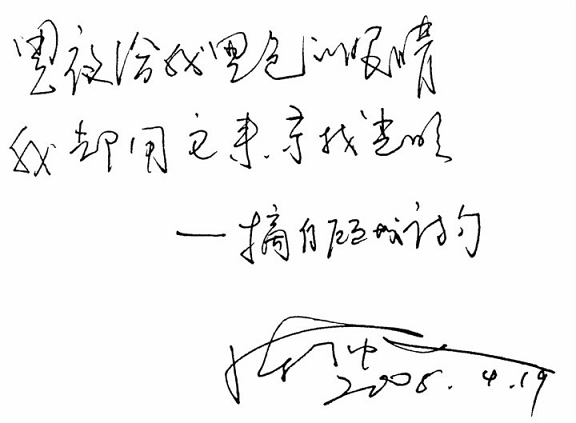 黑夜给我黑色的眼睛
我却用它来寻找光明
—摘自顾城诗句
2008.4.19